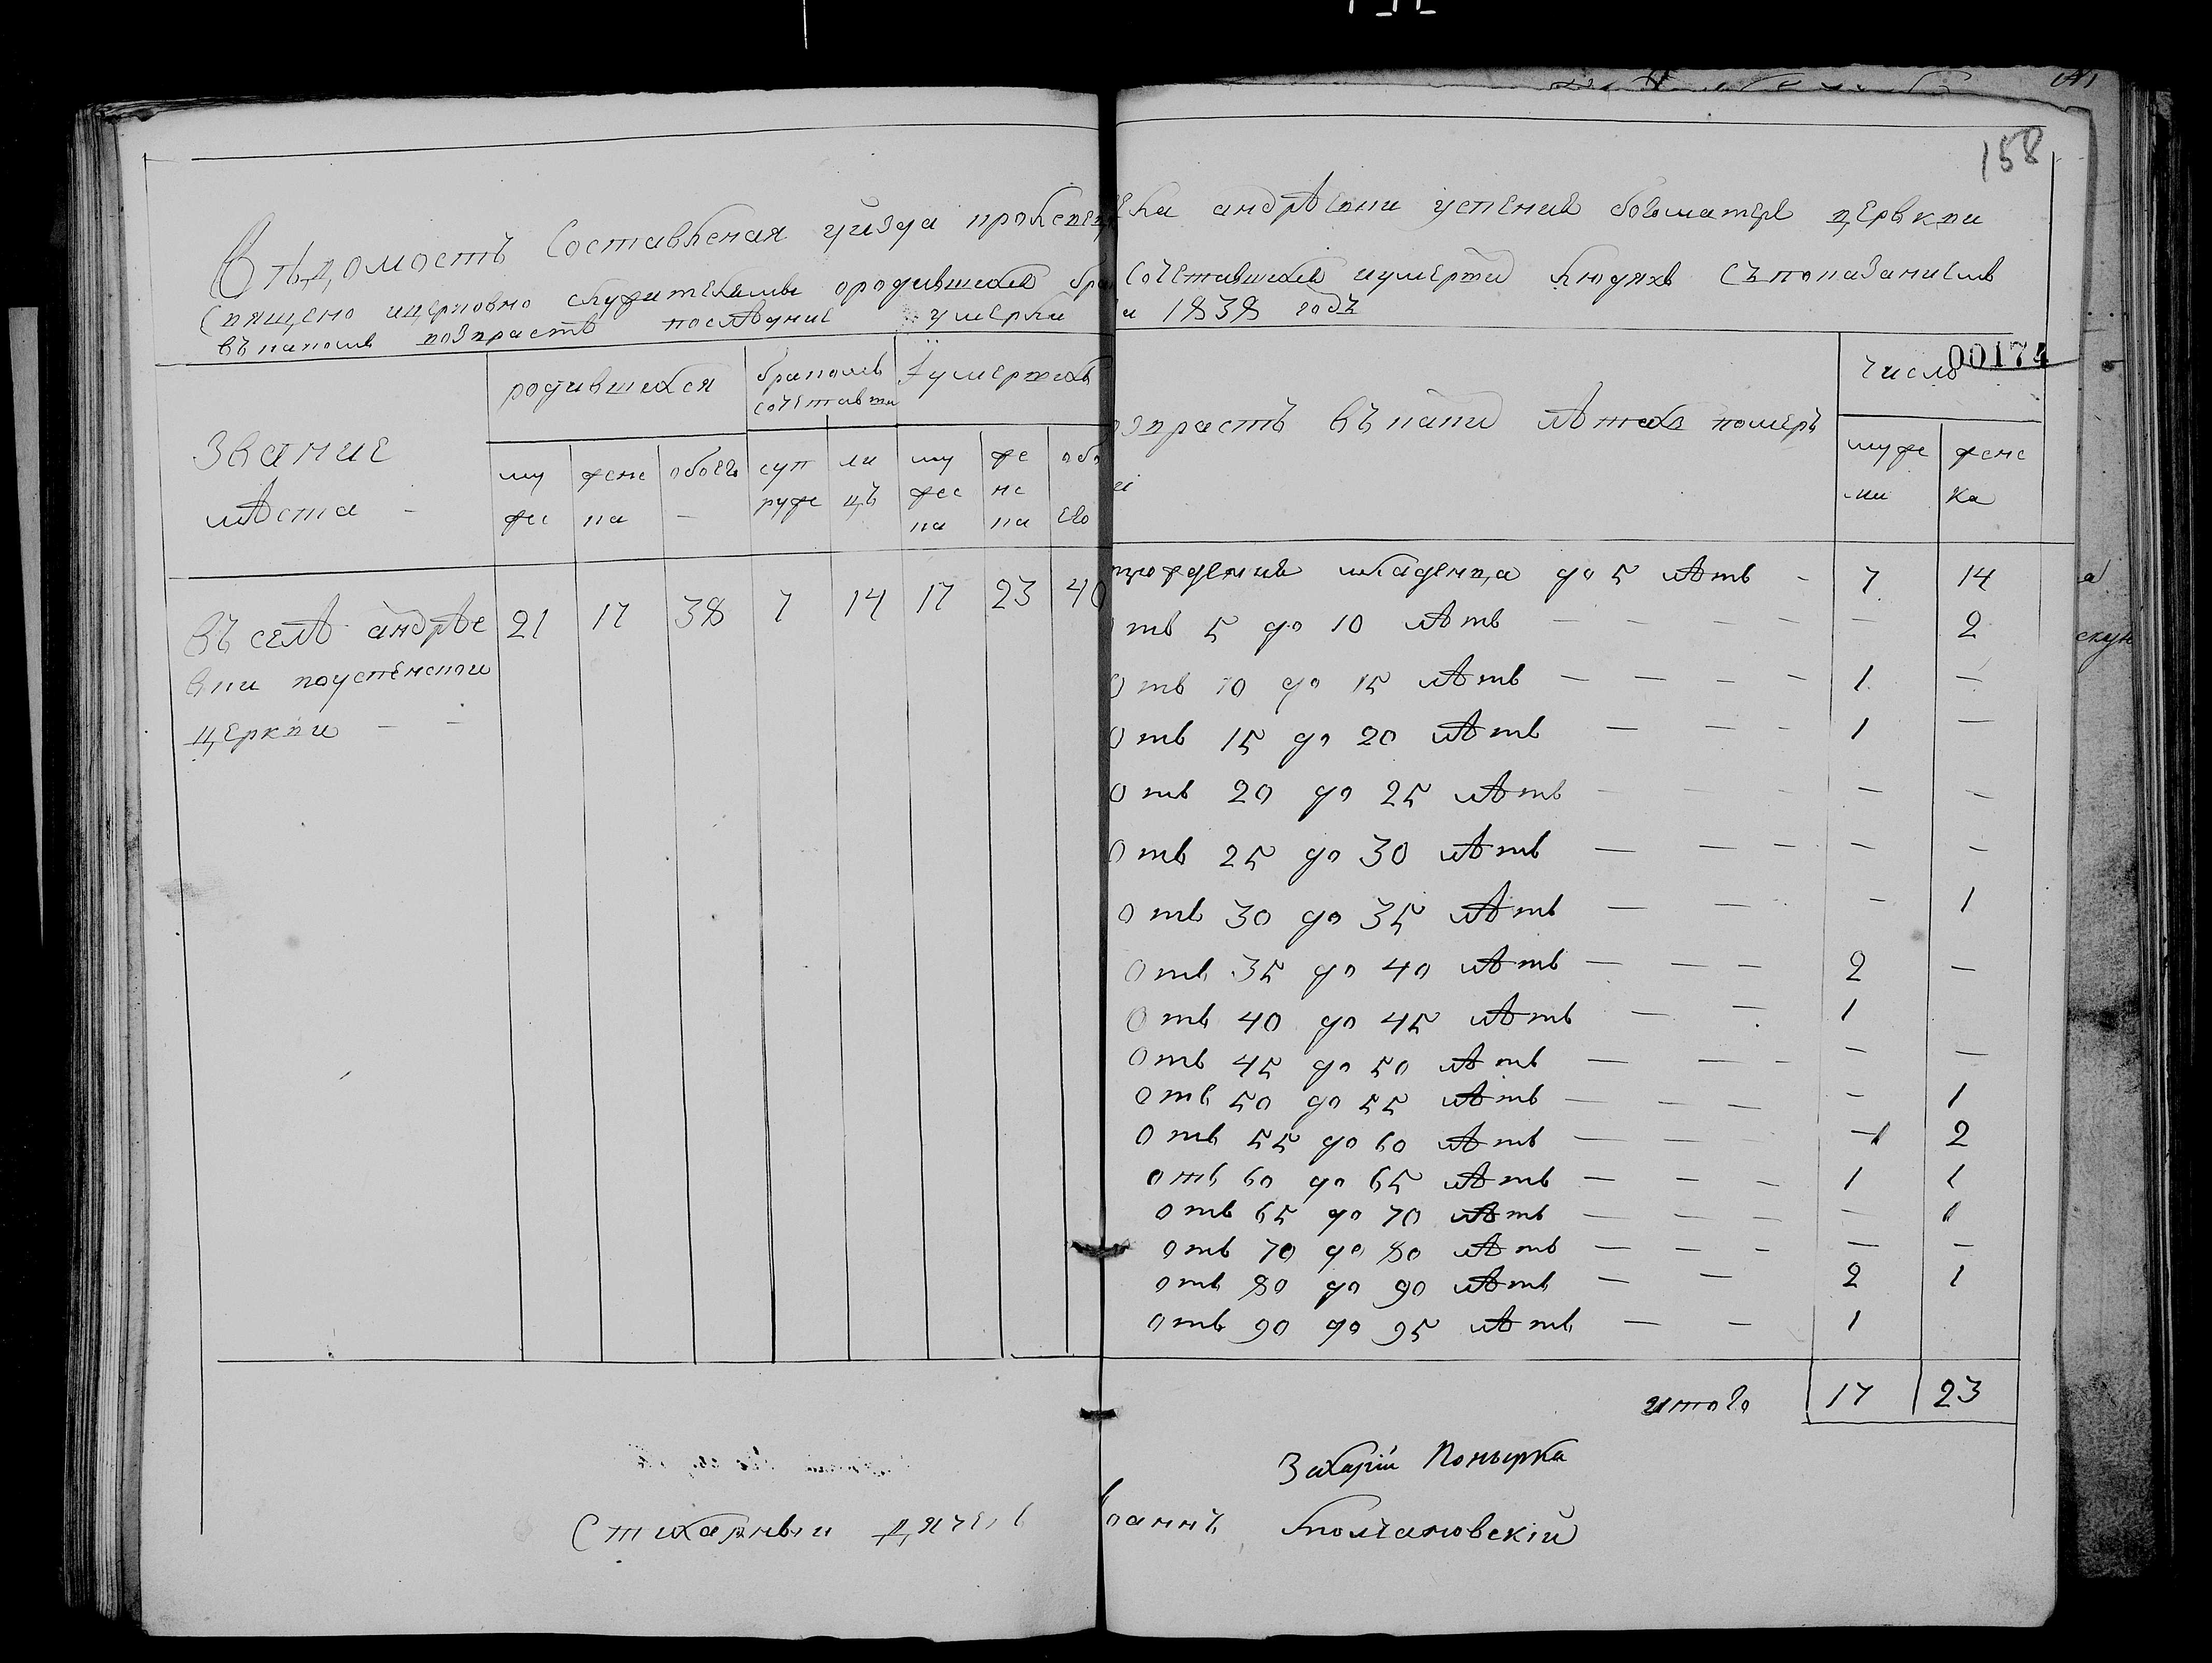 158
Вѣдомость Составленая уйзда андрѣевки успения богоматере церквы
Священо ицерковно служителямы ородившихся Сочетавшихся иумерши людяхъ Съпоказаниемъ
въкакомъ возрастѣ последние умерли 1838 годъ
00174
Звание мѣста -
родившихся
бракомъ сочетавши
умершихъ
возрастъ въкакихъ лѣтахъ померъ
число
му жес
женс ка
обоего -
суп руже
ли цъ
му жес ка
же нс ка
обо его
муже ски
женс ка
въ селѣ андрѣе вки поуспенской церкви - -
21 17 38 7 14 17 23 40
отрождения младенца до 5 лѣтъ - 7 14
отъ 5 до 10 лѣтъ - - - - - - 2
отъ 10 до 15 лѣтъ - - - - 1 -
отъ 15 до 20 лѣтъ - - - 1 -
отъ 20 до 25 лѣтъ - - - - -
отъ 25 до 30 лѣтъ - - - - -
отъ 30 до 35 лѣтъ - - - 1
отъ 35 до 40 лѣтъ - - - 2 -
отъ 40 до 45 лѣтъ - - 1
отъ 45 до 50 лѣтъ - - - - -
отъ 50 до 55 лѣтъ - - - - 1
отъ 55 до 60 лѣтъ - - - -1 2
отъ 60 до 65 лѣтъ - - - 1 1
отъ 65 до 70 лѣтъ - - - - 1
отъ 70 до 80 лѣтъ - - - - -
отъ 80 до 90 лѣтъ - - 2 1
отъ 90 до 95 лѣтъ - - 1
итого 17 23
Захарій Понырка
Стихарный дячекъ Іоаннъ